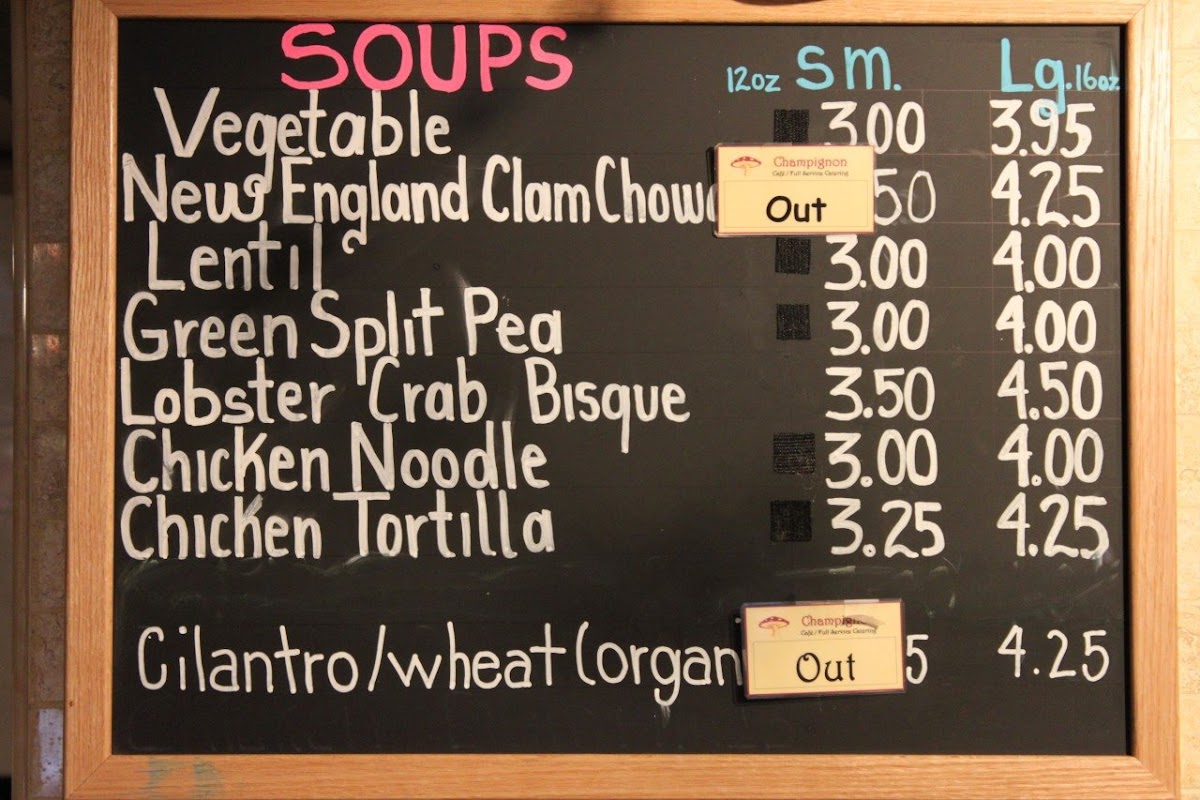 SOUPS 12oz Sm. Lg. 16oz
Vegetable 3.00 3.95
Champignon
Café / Full Service Catering
New England Clam Chow Out 50 4.25
Lentil 3.00 4.00
Green Split Pea 3.00 4.00
Lobster Crab Bisque 3.50 4.50
Chicken Noodle 3.00 4.00
Chicken Tortilla 3.25 4.25
Champignon
Café / Full Service Catering
Cilantro/wheat (organ Out 5 4.25